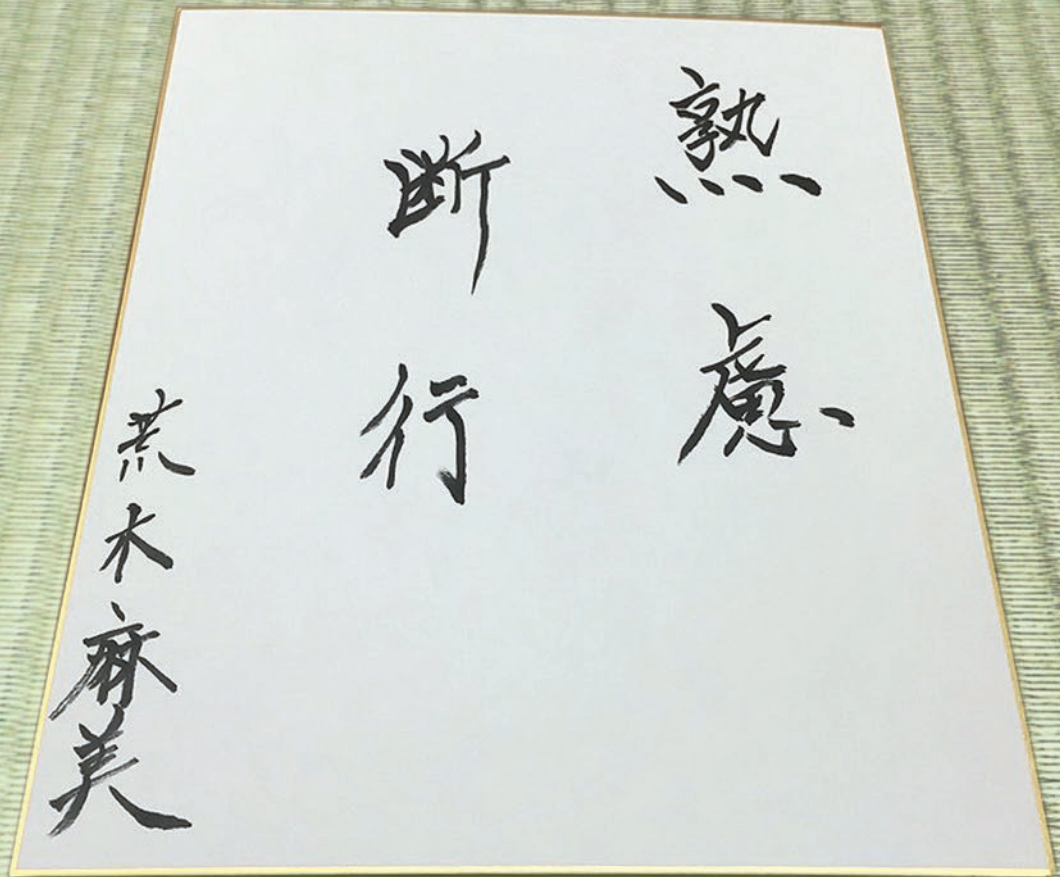 熟慮
断行
荒木麻美